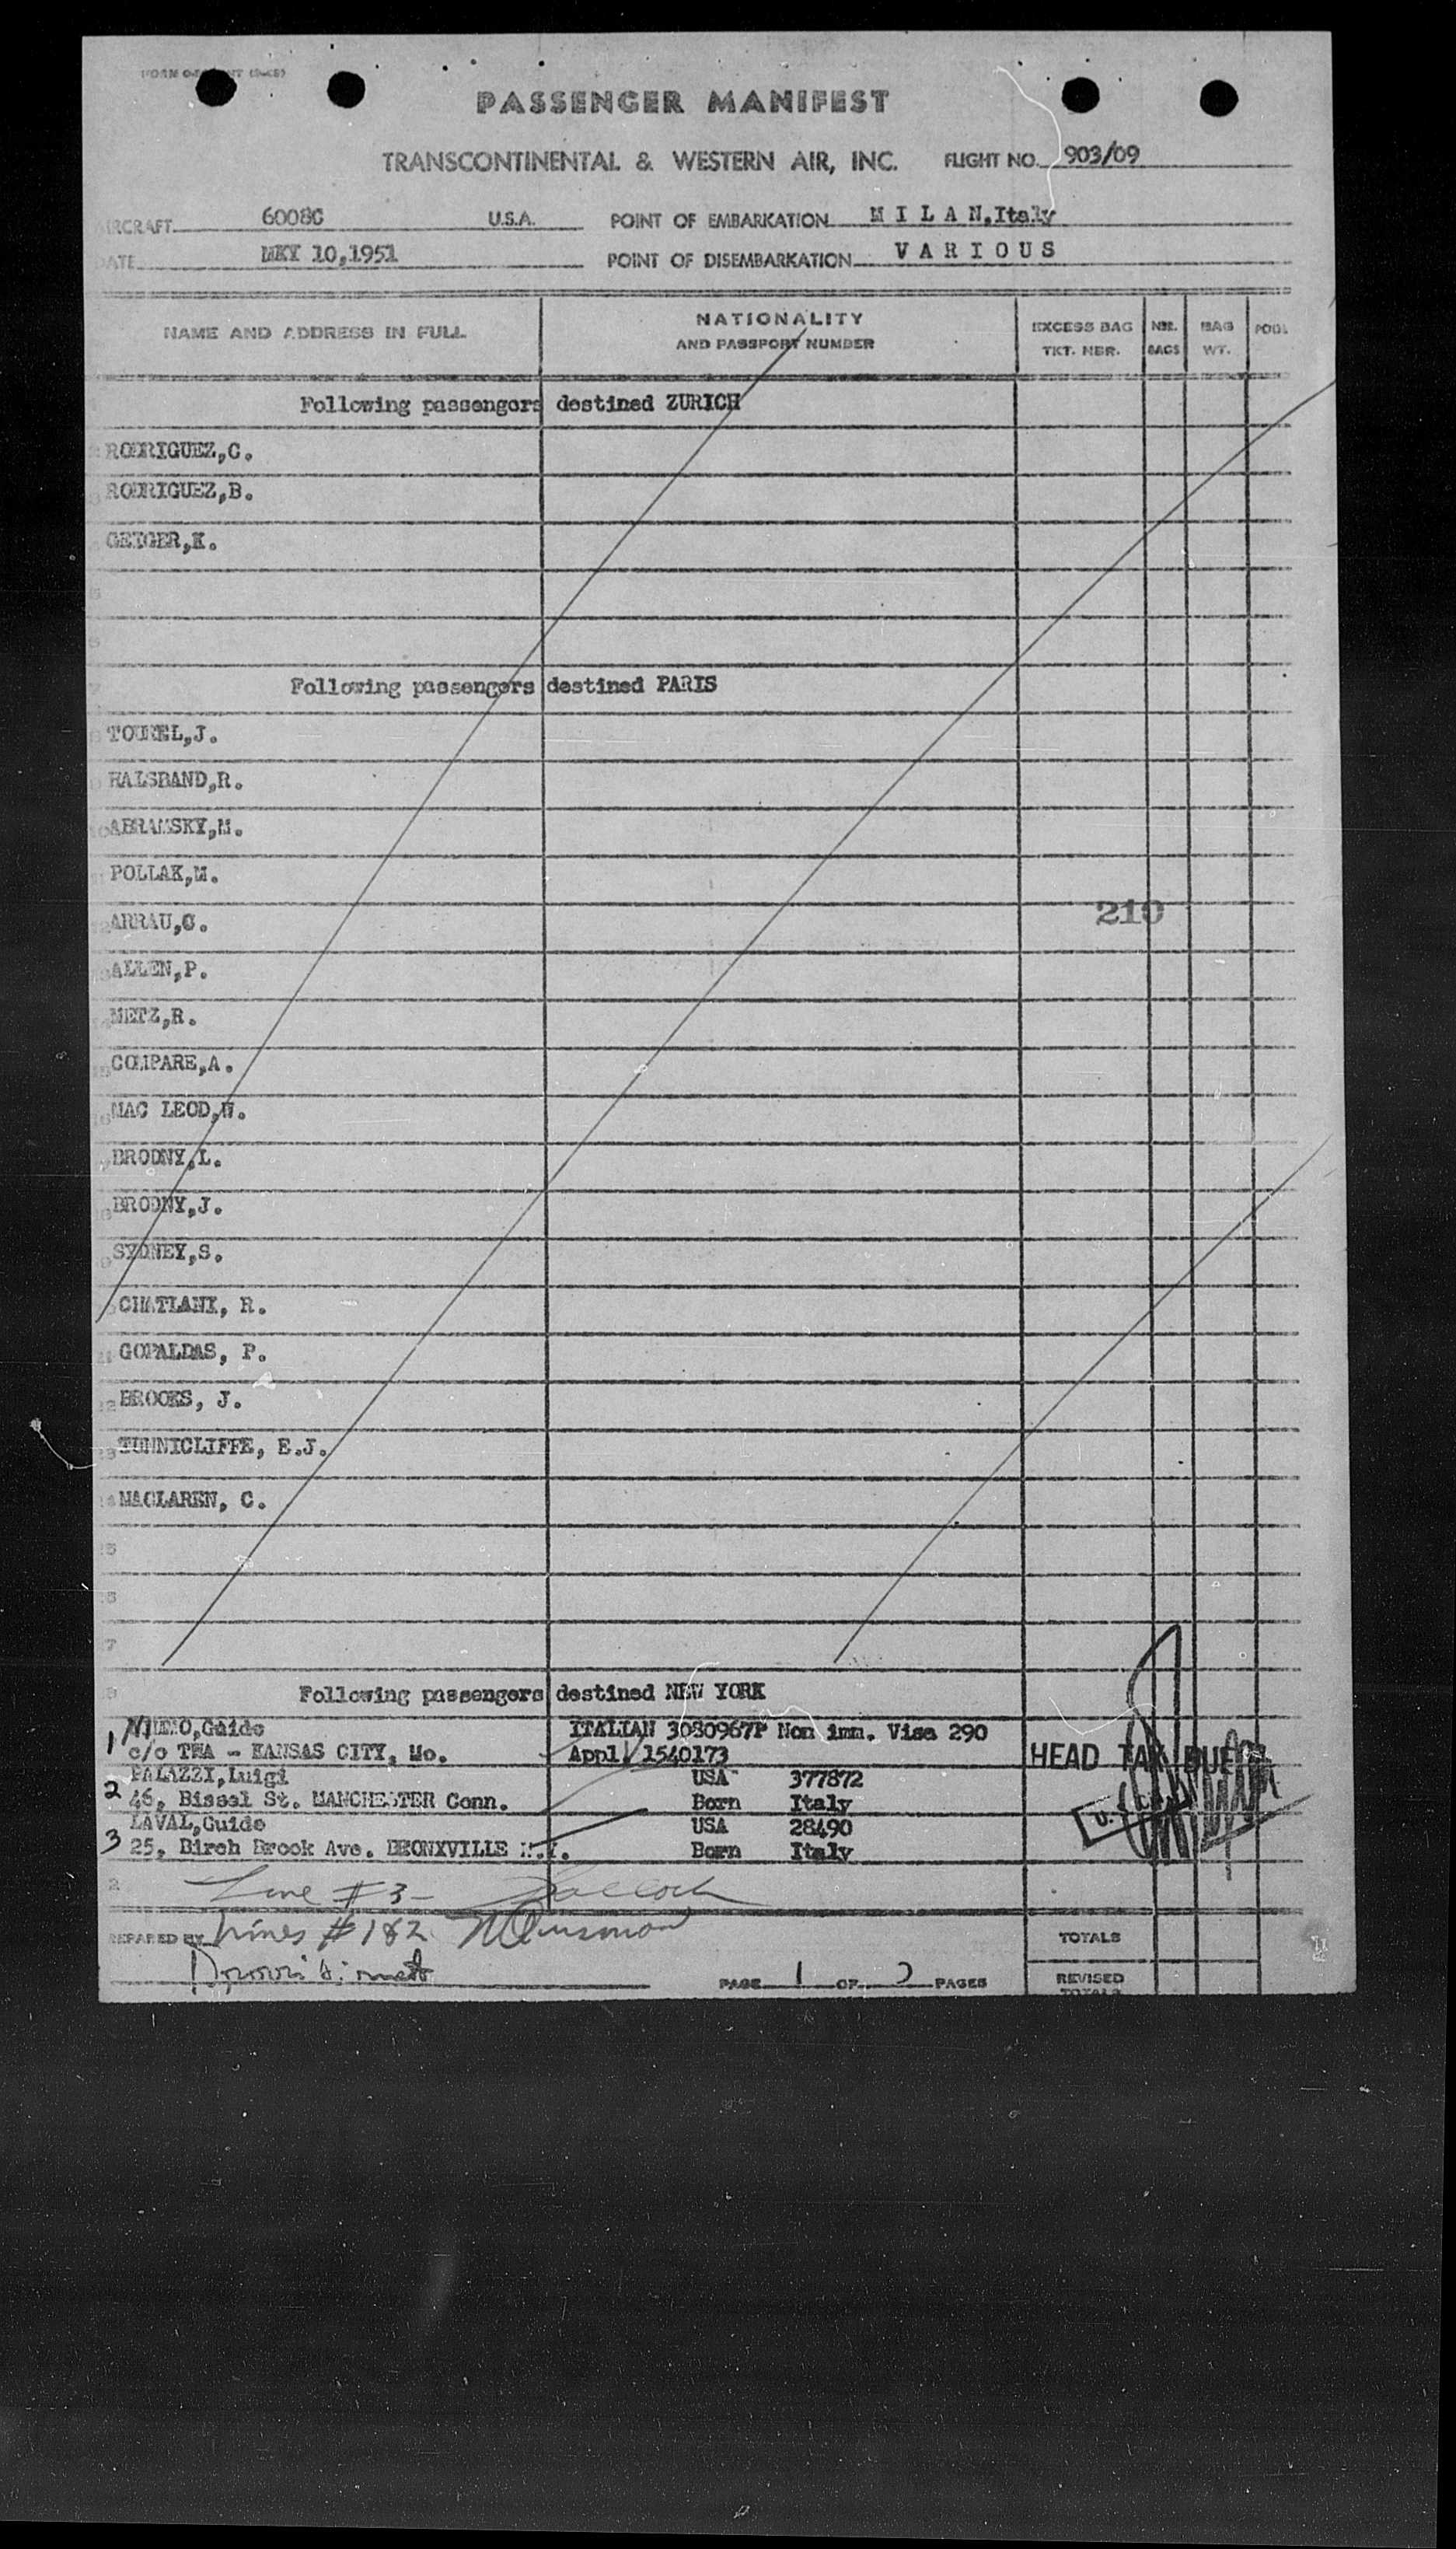 PASSENGER MANIFEST
TRANSCONTINENTAL & WESTERN AIR, INC. FLIGHT NO. 903/09
AIRCRAFT 6008C U.S.A. POINT OF EMBARKATION M I L A N,Italy
DATE MEY 10,1951 POINT OF DISEMBARKATION V A R I O U S
NAME AND ADDRESS IN FULL
NATIONALITY
AND PASSPORT NUMBER
EXCESS BAG
TKT. NBR.
NBR.
BAGS
BAG
WT.
POUL
Following passengers destined ZURICH
RODRIGUEZ,C.
RODRIGUEZ,B.
GEIGER,K.
Following passengers destined PARIS
TOUREL,J.
HALSBAND,R.
ABRAMSKY,M.
POLLAK,M.
ARRAU,C.
210
ALLEN,P.
METZ,R.
COMPARE,A.
MAC LEOD,W.
BRODNY,L.
BRODNY,J.
SYDNEY,S.
CHATLANI, R.
GOPALDAS, P.
BROOKS, J.
TUNNICLIFFE, E.J.
MACLAREN, C.
Following passengers destined NEW YORK
1 Guido ITALIAN 3080967P Non imm. Visa 290
c/o TWA - KANSAS CITY, Mo. Appl. 1540173
HEAD TAX DUE
2 PALAZZI,Luigi USA 377872
46, Bissel St. MANCHESTER Conn. Born Italy
3 LAVAL,Guido USA 28490
25, Birch Brook Ave. BRONXVILLE N.Y. Born Italy
Line #3-
PREPARED BY Lines #1&2
TOTALS
PAGE 1 OF 2 PAGES
REVISED
TOTALS